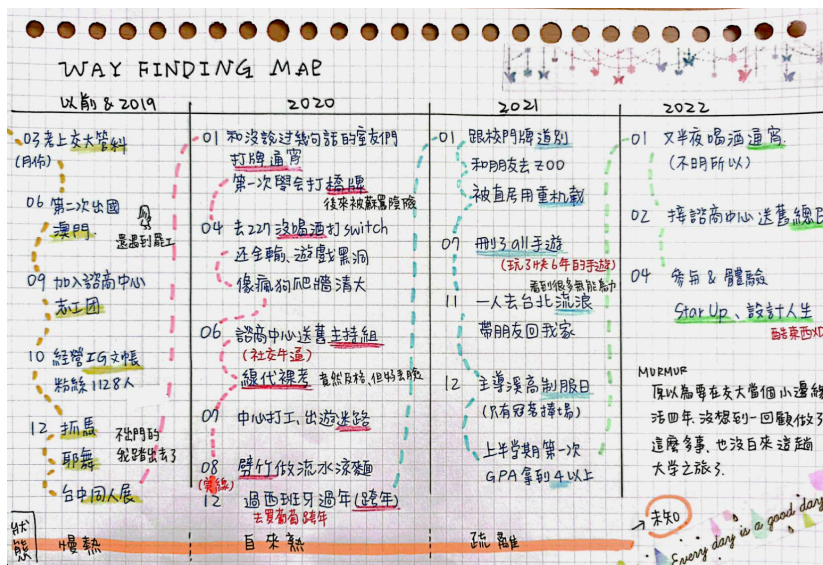 WAY FINDING MAP
以前&2019
03 考上交大管科
(月份)
06 第二次出國
澳門
還遇到罷工
09 加入諮商中心
志工团
10 經營IG文帳
粉絲1128人
12 抓馬
耶舞
台中同人展
不出門的
我踏出去了
2020
01 和沒說过幾句話的室友們
打牌通宵
第一次學会打橋牌
後來被蘇罵陰險
04 去227沒喝酒打switch
还全輸、遊戲黑洞
像瘋狗爬牆清大
06 諮商中心送舊主持組
(社交牛逼)
線代裸考 竟然及格,但好丟臉
07 中心打工、出遊迷路
08 劈竹做流水涼麵
12 過西班牙過年(跨年)
去買葡萄跨年
2021
01 跟校門牌道別
和朋友去ZOO
被直居用重机載
07 刪了all手遊
(玩了快6年的手遊)
11 一人去台北流浪
帶朋友回我家
12 主導溪高制服日
上半学期第一次
GPA拿到4以上
2022
01 又半夜喝酒通宵.
(不明所以)
02 接諮商中心送舊總
04 参与&體驗
Star Up、設計人生
酷東西XD
MURMUR
原以為要在交大當個小邊緣
活四年,沒想到一回顧做了
這麼多事,也沒白來這趟
大学之旅了.
狀態
慢熱
自來熟
疏離
→未知
Every day is a good day